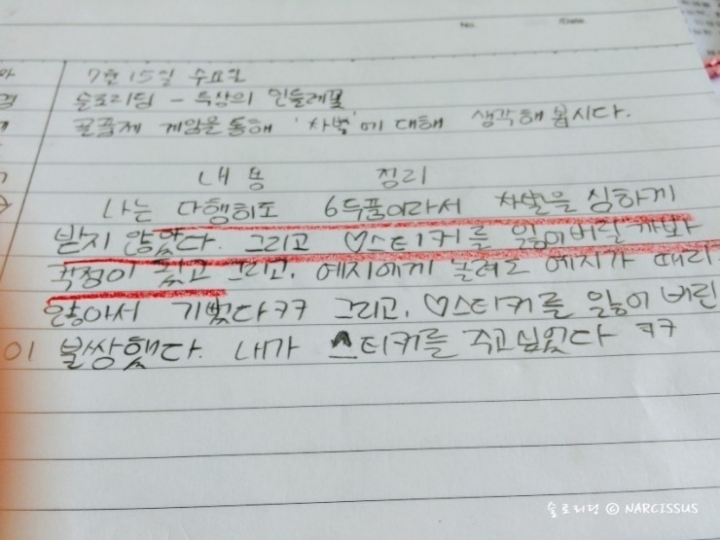 No. Date.
7월 15일 수요일
슬로리딩 - 옥상의 민들레꽃
골품제 게임을 통해 '차별'에 대해 생각해 봅시다.
내용 정리
나는 다행히도 6두품이라서 차별을 심하게
받지 않았다. 그리고 ♡스티커를 잃어버릴까봐
걱정이 됬고 그리고, 예지에게 놀려도 예지가 때리
않아서 기뻤다ㅋㅋ 그리고, ♡스티커를 잃어 버린
이 불쌍했다. 내가 스티커를 주고싶었다 ㅋㅋ
슬로리딩 © NARCISSUS